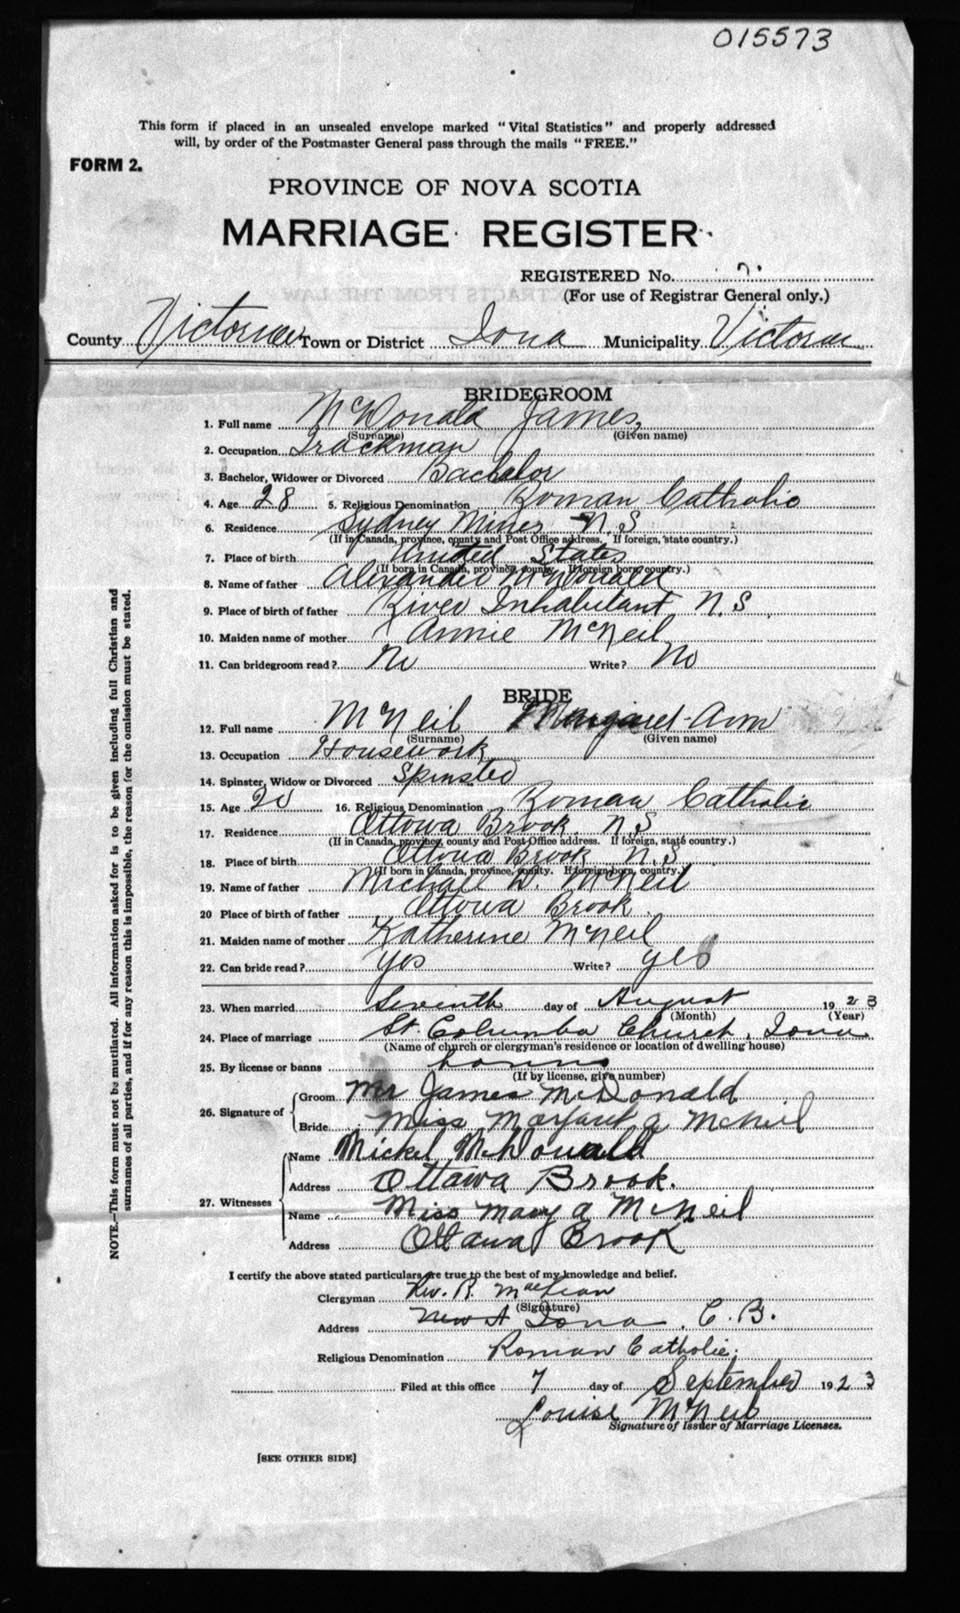 015573
This form if placed in an unsealed envelope marked "Vital Statistics" and properly addressed
will, by order of the Postmaster General pass through the mails "FREE."
FORM 2.
PROVINCE OF NOVA SCOTIA
MARRIAGE REGISTER
REGISTERED No.
(For use of Registrar General only.)
County Victoria Town or District Iona Municipality Victoria
BRIDEGROOM
1. Full name McDonald James
(Surname) (Given name)
2. Occupation Trackman
3. Bachelor, Widower or Divorced Bachelor
4. Age 28 5. Religious Denomination Roman Catholic
6. Residence Sydney Mines N.S
(If in Canada, province, county and Post Office address. If foreign, state country.)
7. Place of birth United States
(If born in Canada, province, county. If foreign born, country.)
8. Name of father Alexander McDonald
9. Place of birth of father River Inhabitant N.S
10. Maiden name of mother Annie McNeil
11. Can bridegroom read? No Write? No
BRIDE
12. Full name McNeil Margaret Ann
(Surname) (Given name)
13. Occupation Housework
14. Spinster, Widow or Divorced Spinster
15. Age 20 16. Religious Denomination Roman Catholic
17. Residence Ottowa Brook N.S
(If in Canada, province, county and Post Office address. If foreign, state country.)
18. Place of birth Ottowa Brook N.S
(If born in Canada, province, county. If foreign born, country.)
19. Name of father Michael D. McNeil
20 Place of birth of father Ottowa Brook
21. Maiden name of mother Katherine McNeil
22. Can bride read? yes Write? yes
23. When married Seventh day of August 1923
(Month) (Year)
24. Place of marriage St. Columba Church, Iona
(Name of church or clergyman's residence or location of dwelling house)
25. By license or banns banns
(If by license, give number)
26. Signature of Groom Mr James McDonald
Bride Miss Margaret A McNeil
27. Witnesses Name Mickel McDonald
Address Ottawa Brook.
Name Miss Mary A McNeil
Address Ottawa Brook
I certify the above stated particulars are true to the best of my knowledge and belief.
Clergyman Rev. R. MacLean
(Signature)
Address Iona, C.B.
Religious Denomination Roman Catholic.
Filed at this office 7 day of September 1923
Louise McNeil
Signature of Issuer of Marriage Licenses.
[SEE OTHER SIDE]
NOTE.—This form must not be mutilated. All information asked for is to be given including full Christian and
surnames of all parties, and if for any reason this is impossible, the reason for the omission must be stated.